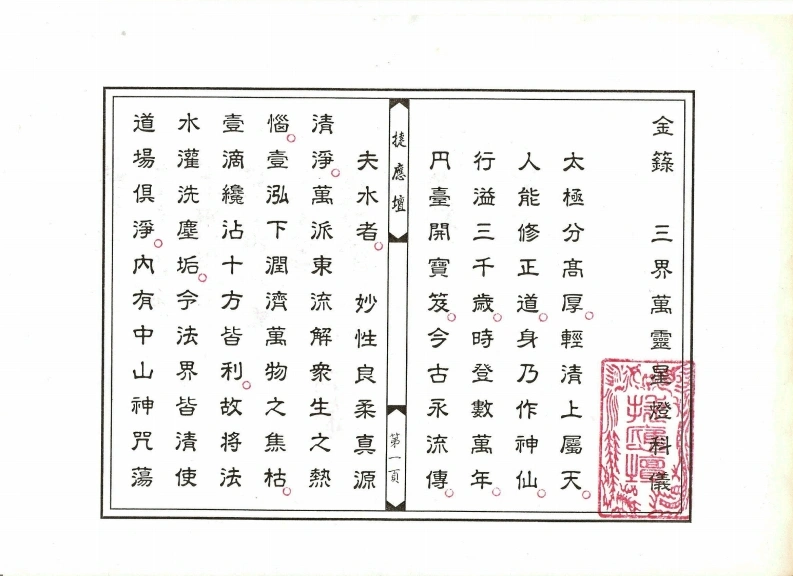 金籙 三界萬靈星燈科儀
太極分髙厚輕清上屬天
人能修正道身乃作神仙
行溢三千歲時登數萬年
円臺開寶笈今古永流傳
捷應壇
第一頁
夫水者 妙性良柔真源
清淨萬派東流解衆生之熱
惱壹泓下潤濟萬物之焦枯
壹滴纔沾十方皆利故将法
水灌洗塵垢令法界皆清使
道場俱淨內有中山神咒蕩